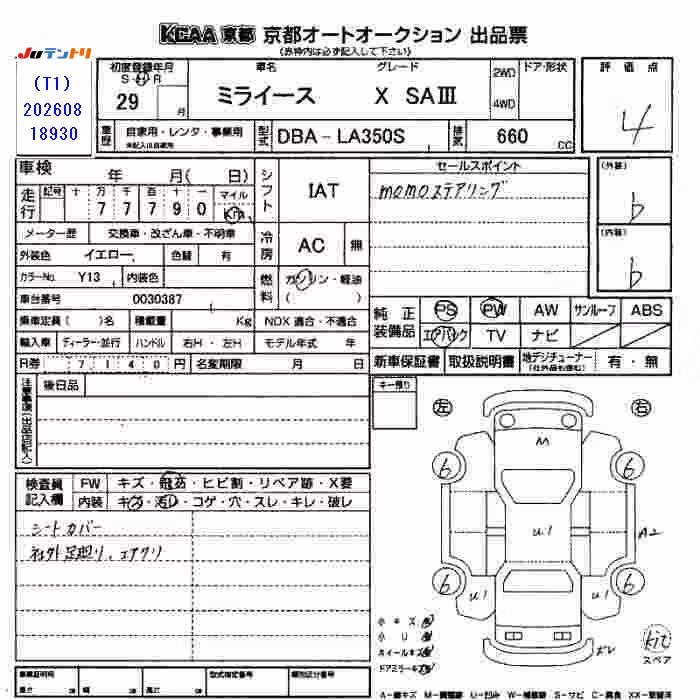 KCAA 京都 京都オートオークション 出品票
(赤枠内は必ず記入して下さい)
JUテントリ
(T1)
202608
18930
初度登録年月
S・H・R
29
月
車名
グレード
ミライース X SAⅢ
2WD
4WD
ドア・形状
評価点
4
車歴
自家用・レンタ・事業用
未記入は自家用
型式
DBA-LA350S
排気
660
CC
車検 年 月( 日)
走行
記号
十 万 千 百 十 一
マイル
7 7 7 9 0
Km
シフト
IAT
セールスポイント
momoステアリング
(外装)
b
(内装)
b
メーター歴 交換車・改ざん車・不明車
外装色 イエロー
色替 有
冷房
AC
無
カラーNo. Y13
内装色
燃料
ガソリン・軽油
( )
車台番号 0030387
乗車定員 ( )名
積載量 Kg
NOX 適合・不適合
輸入車 ディーラー・並行
ハンドル 右H・左H
モデル年式 年
R券 7 1 4 0 円
名変期限 月 日
純正装備品
PS PW AW サンルーフ ABS
エアバック TV ナビ
新車保証書 取扱説明書 地デジチューナー 有・無
注意事項(出品店記入)
後日品
キー預り
左
右
検査員記入欄
FW キズ・飛石・ヒビ割・リペア跡・X要
内装 キズ・汚レ・コゲ・穴・スレ・キレ・破レ
シートカバー
社外足廻り、エアクリ
M
6
6
U1
A2
6
6
U1
U1
小キズ
小U
ホイールキズ
ドアミラーキズ
ボレ
kit
スペア
車輌証明用
長さ cm
幅 cm
高さ cm
型式指定番号
類別区分番号